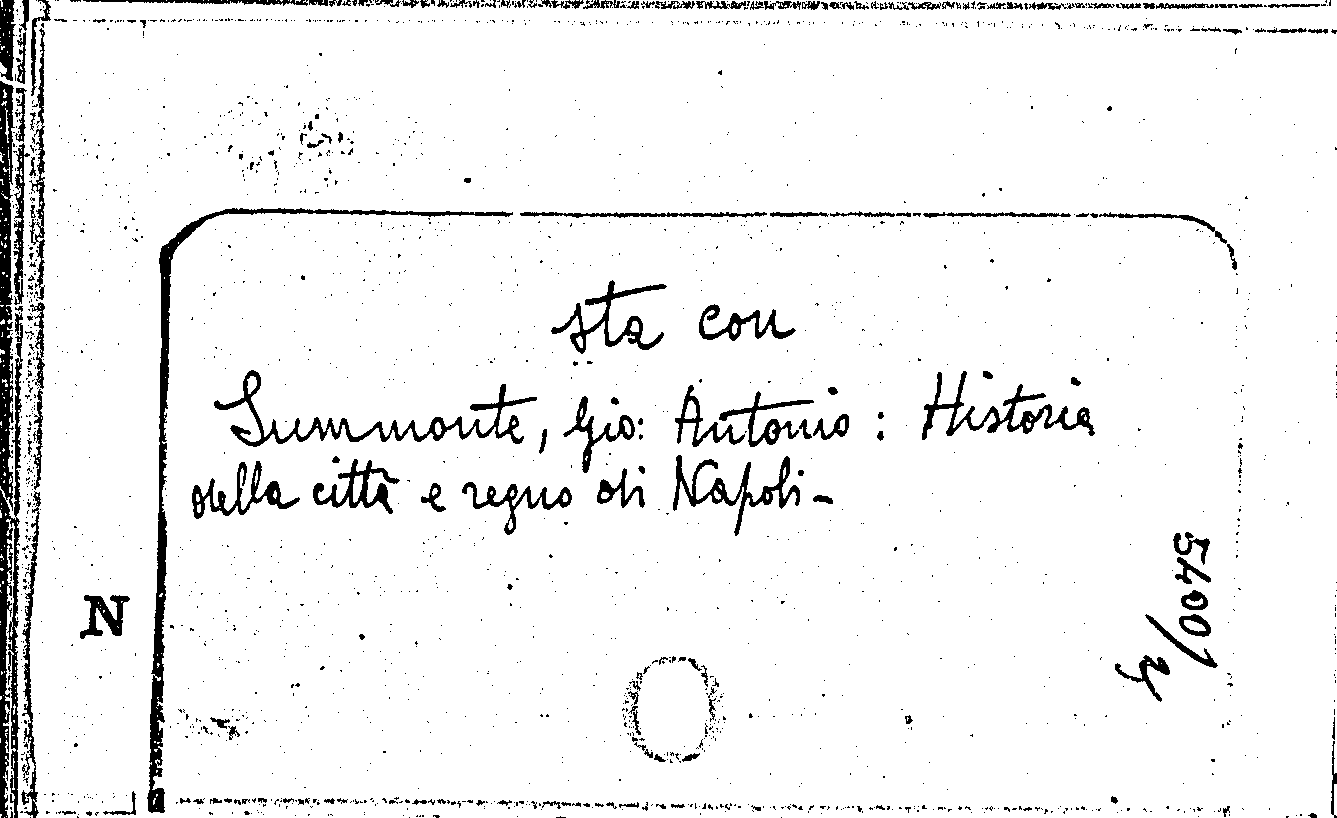 sta con
Summonte, Gio: Antonio : Historia
della città e regno di Napoli-
N
5400/